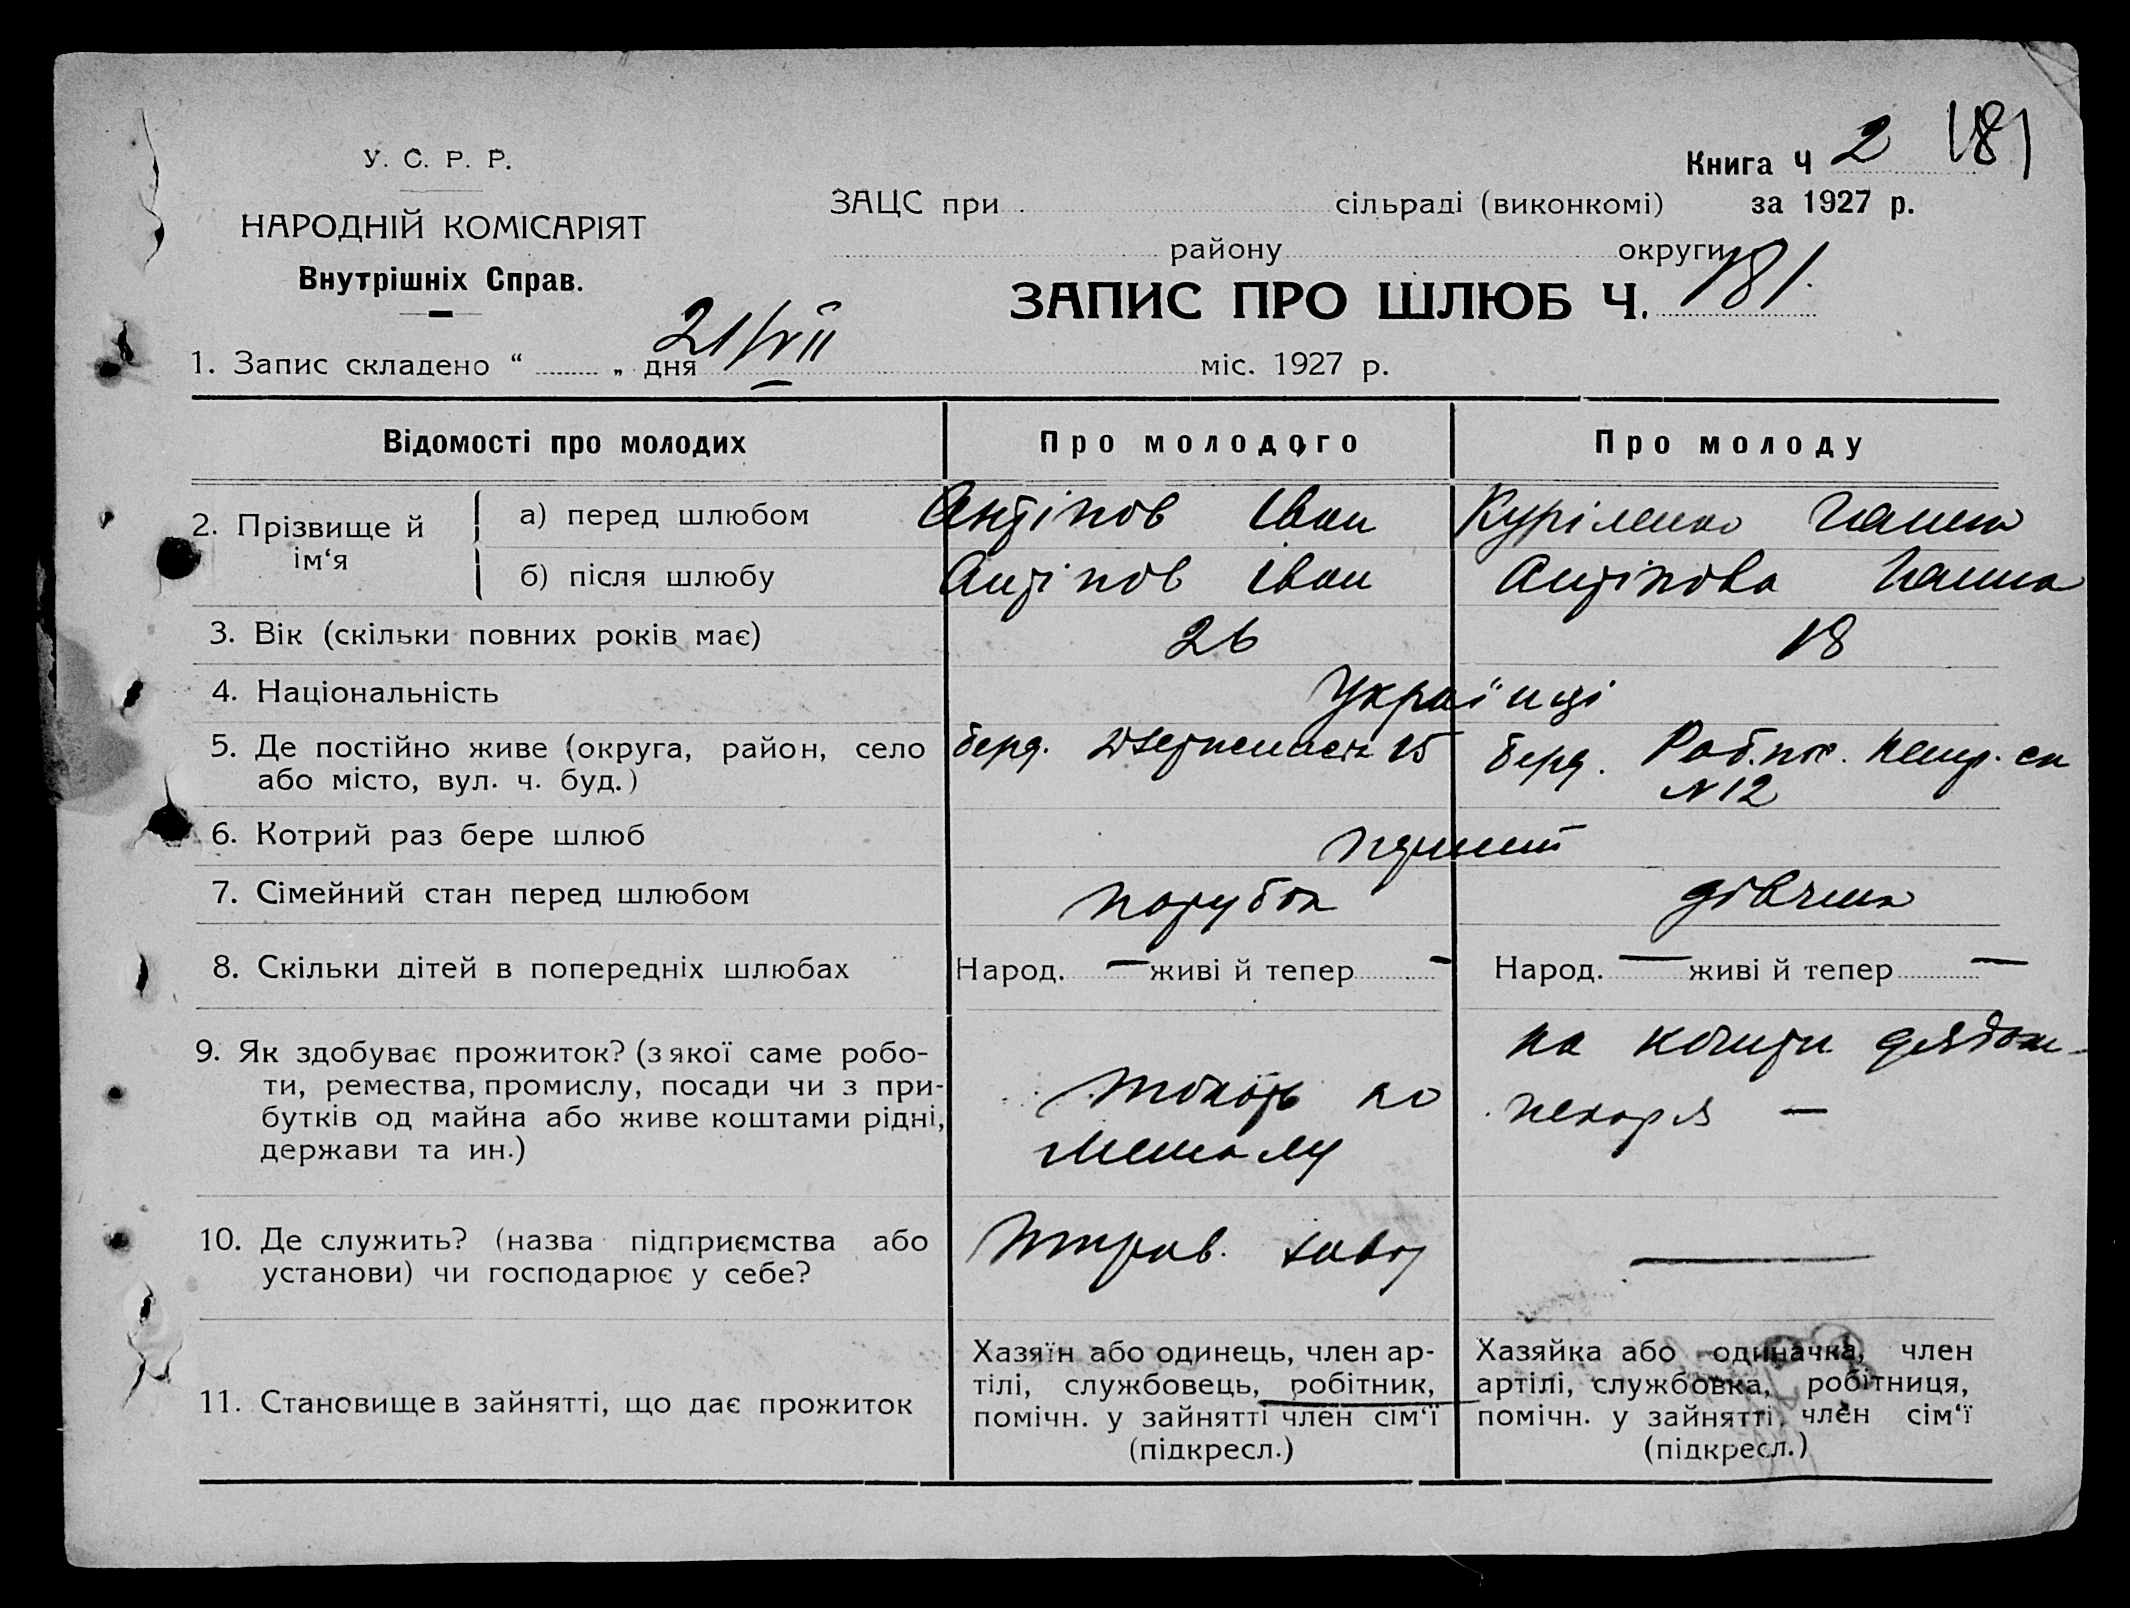 Книга Ч 2 181
У. С. Р. Р.
ЗАЦС при сільраді (виконкомі) за 1927 р.
НАРОДНІЙ КОМІСАРІЯТ
району округи
Внутрішніх Справ.
ЗАПИС ПРО ШЛЮБ Ч. 181.
1. Запис складено “ „ дня 21/VII міс. 1927 р.
Відомості про молодих Про молодого Про молоду
2. Прізвище й ім‘я
а) перед шлюбом Антіпов Іван Куріленко Ганна
б) після шлюбу Антіпов Іван Антіпова Ганна
3. Вік (скільки повних років має) 26 18
4. Національність Українці
5. Де постійно живе (округа, район, село берд. 15 берд. Роб.
або місто, вул. ч. буд.) N 12
6. Котрий раз бере шлюб
7. Сімейний стан перед шлюбом парубок дівчина
8. Скільки дітей в попередніх шлюбах Народ. — живі й тепер — Народ. — живі й тепер —
9. Як здобуває прожиток? (з якої саме робо- на кошти
ти, ремества, промислу, посади чи з при- токарь по
бутків од майна або живе коштами рідні, пекаря —
держави та ин.) металу
10. Де служить? (назва підприємства або завод —
установи) чи господарює у себе?
11. Становище в зайнятті, що дає прожиток
Хазяїн або одинець, член ар-
тілі, службовець, робітник,
помічн. у зайнятті член сім‘ї
(підкресл.)
Хазяйка або одиначка, член
артілі, службовка, робітниця,
помічн. у зайнятті, член сім‘ї
(підкресл.)